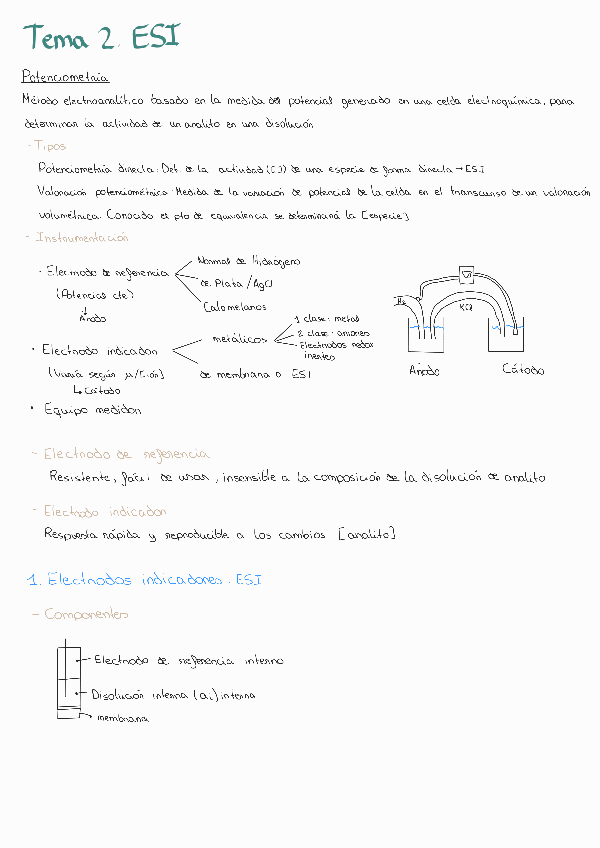 Tema 2. ESI
Potenciometría
Método electroanalítico basado en la medida del potencial generado en una celda electroquímica, para
determinar la actividad de un analito en una disolución
- Tipos
Potenciometría directa: Det. de la actividad (CJ) de una especie de forma directa → ESI
Valoración potenciométrica: Medida de la variación de potencial de la celda en el transcurso de un valoración
volumétrica. Conocido el pto de equivalencia se determinará la [especie]
- Instrumentación
· Electrodo de referencia
(Potencial cte)
↓
Ánodo
Normal de Hidrógeno
de Plata / AgCl
Calomelanos
· Electrodo indicador
(Varía según
↳ Cátodo
metálicos
1 clase: metal
2 clase: aniones
Electrodos redox
inertes
de membrana o ESI
· Equipo medidor
KCl
Ánodo
Cátodo
- Electrodo de referencia
Resistente, fácil de usar, insensible a la composición de la disolución de analito
- Electrodo indicador
Respuesta rápida y reproducible a los cambios [analito]
1. Electrodos indicadores. ESI
- Componentes
Electrodo de referencia interno
Disolución interna (ai) interna
membrana